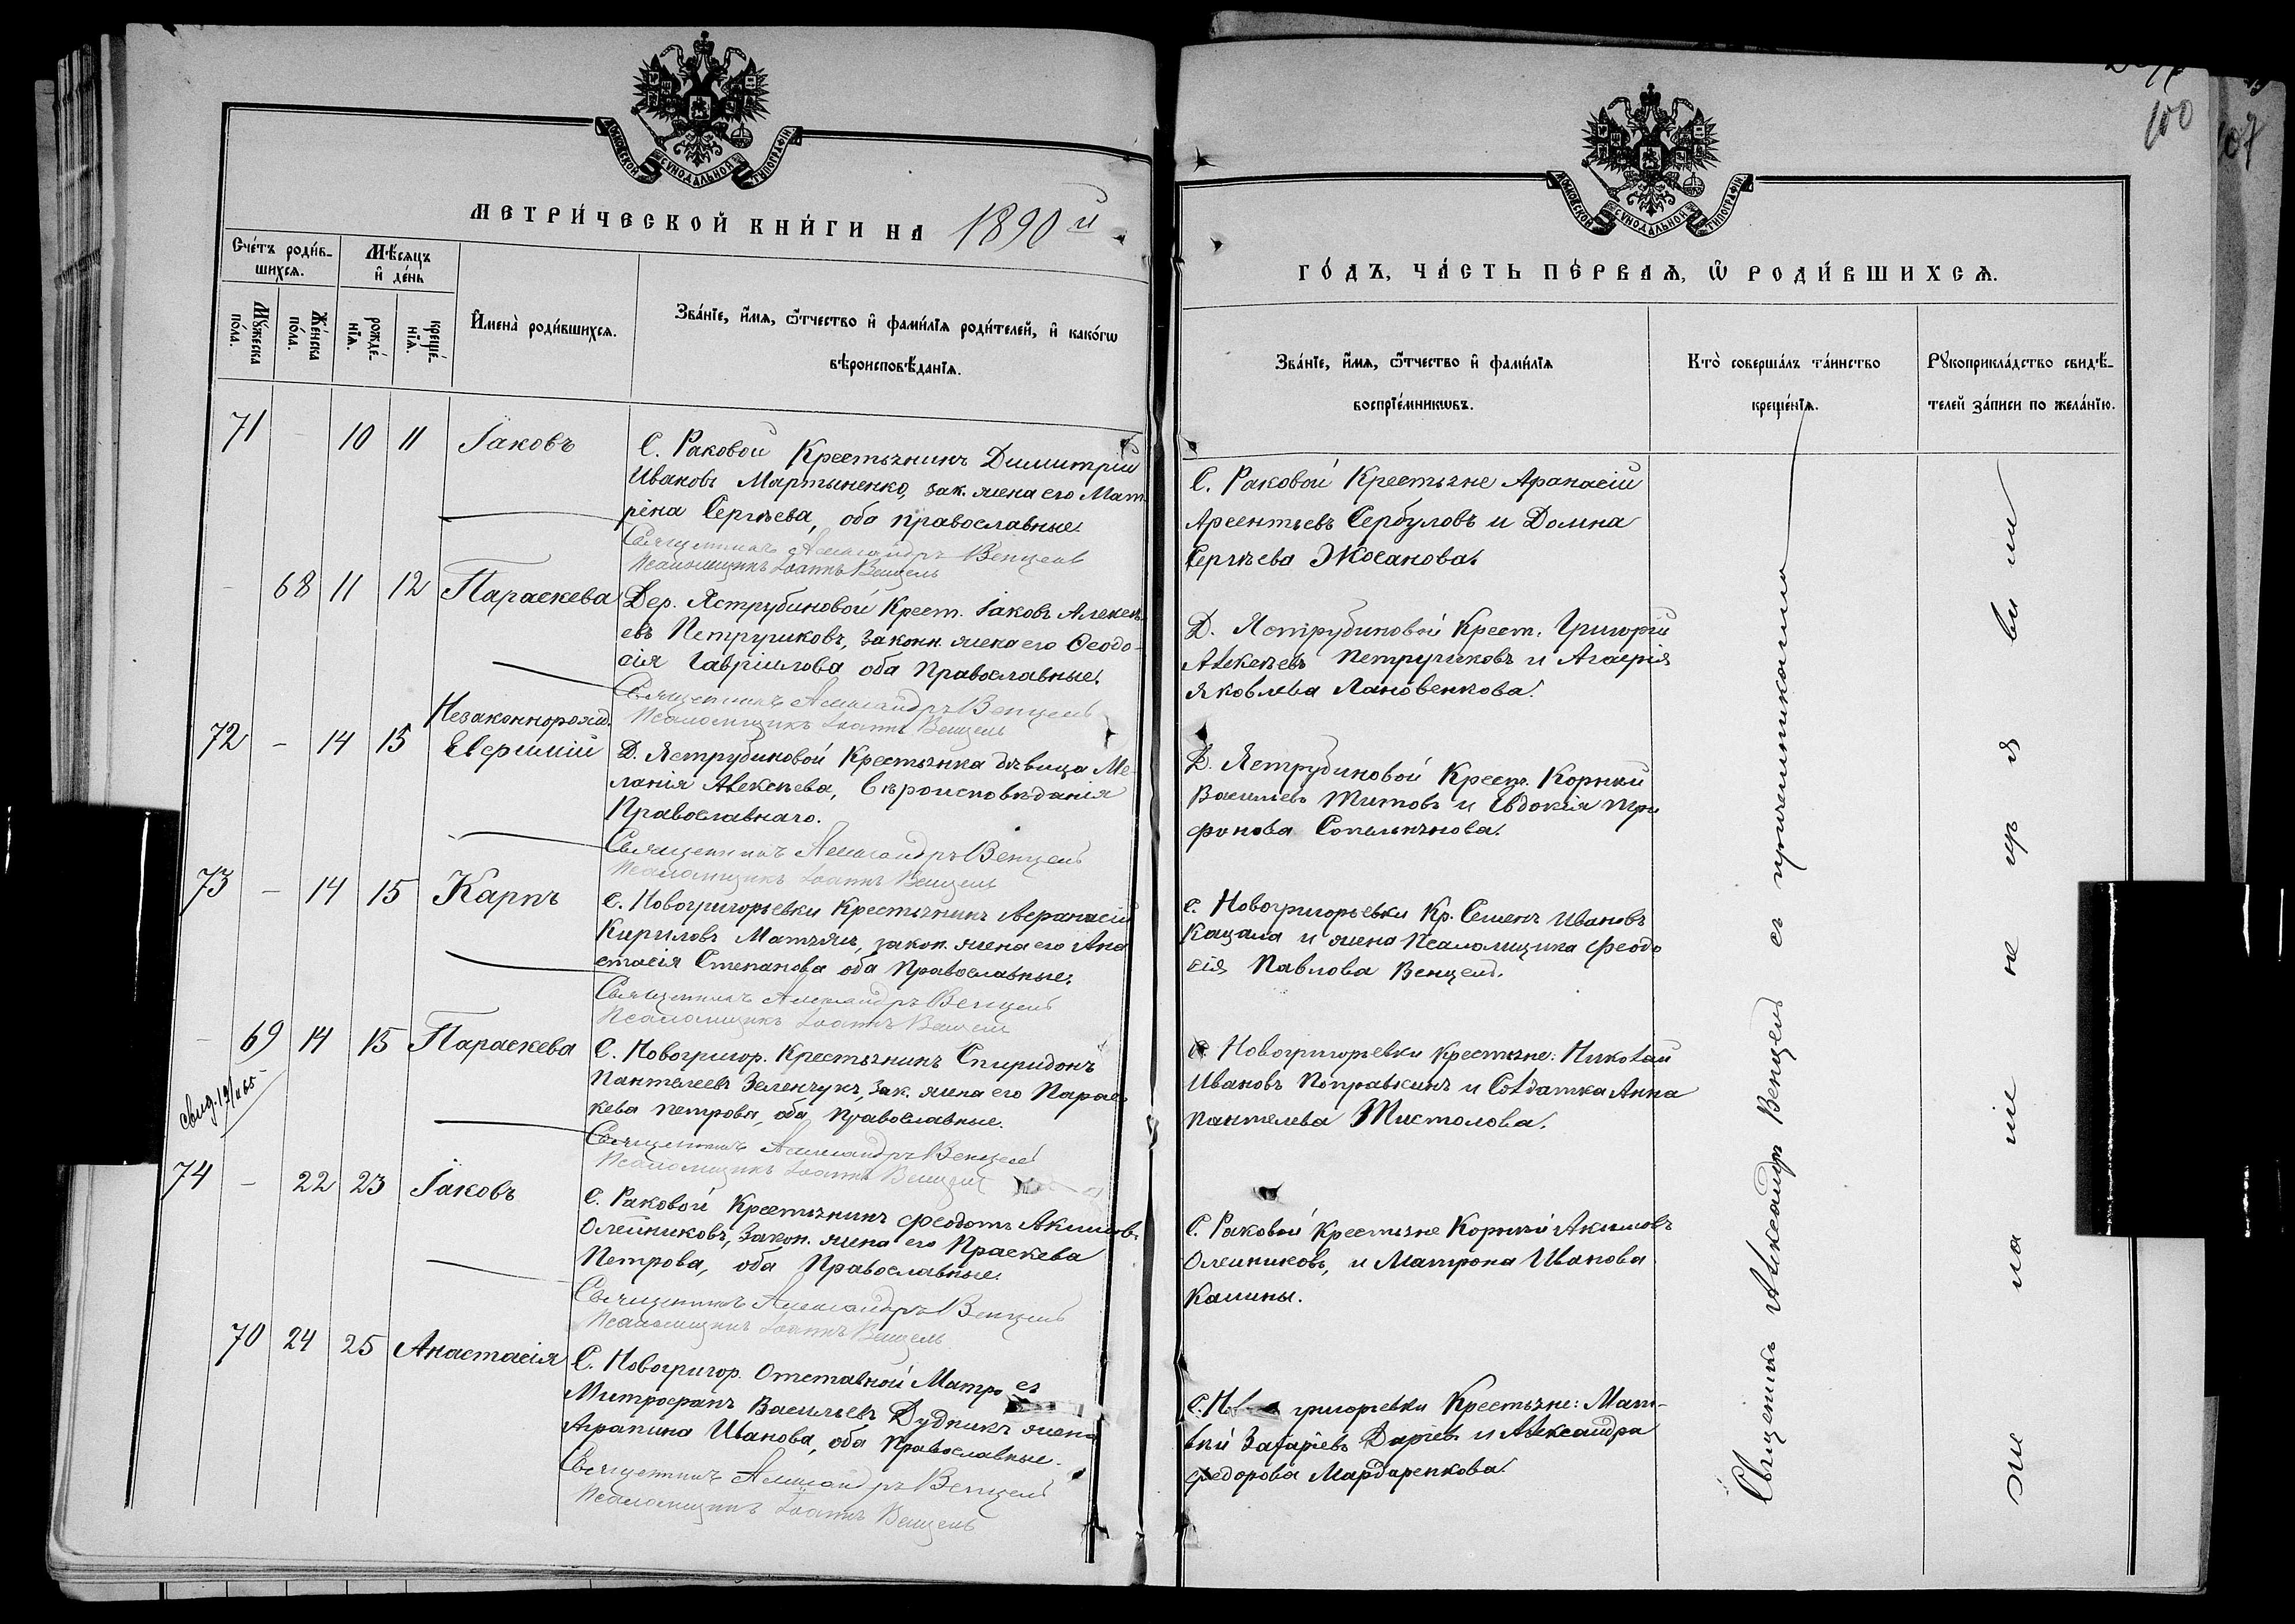 МОСКОВСКОЙ СѴНОДАЛЬНОЙ ТѴПОГРАФІИ
МЕТРИ́ЧЕСКОЙ КНИ́ГИ НА 1890 й
Сче́тъ роди́в-
шихсѧ.
Мѣ́сѧцъ
и҆ де́нь
Мꙋ́жеска
по́ла.
Же́нска
по́ла.
рожде́-
нїѧ.
креще́-
нїѧ.
И҆мена̀ роди́вшихсѧ.
Зва́нїе, и҆́мѧ, ѻ҆́тчество и҆ фами́лїѧ роди́телей, и҆ како́гѡ
вѣроисповѣ́данїѧ.
71 - 10 11 Іаковъ
С. Раковой Крестьянинъ Димитрій
Ивановъ Мартыненко, зак. жена его Мат
рена Сергѣева, оба православные
Священникъ Александръ Венцель
Псаломщикъ Іоаннъ Венцель
- 68 11 12 Параскева
Дер. Яструбиновой Крест. Іаковъ Алексѣ
евъ Петрушковъ, законн. жена его Феодо-
сія Гавріилова оба Православные.
Священникъ Александръ Венцель
Псаломщикъ Іоаннъ Венцель
Незаконнорожд.
72 - 14 15 Евфимій
Д. Яструбиновой Крестьянка дѣвица Ме-
ланія Алексѣева, Вѣроисповѣданія
Православнаго.
Священникъ Александръ Венцель
Псаломщикъ Іоаннъ Венцель
73 - 14 15 Карпъ
С. Новогригорьевки Крестьянинъ Афанасій
Кириловъ закон. жена его Ана
стасія Степанова оба Православные.
Священникъ Александръ Венцель
Псаломщикъ Іоаннъ Венцель
- 69 14 15 Параскева
С. Новогригор. Крестьянинъ Спиридонъ
Пантелеевъ Зеленчукъ, зак. жена его Парас
кева Петрова, оба Православные.
Священникъ Александръ Венцель
Псаломщикъ Іоаннъ Венцель
74 - 22 23 Іаковъ
С. Раковой Крестьянинъ Феодотъ Акимовъ
Олейниковъ, Закон. жена его Праскева
Петрова, оба Православные.
Священникъ Александръ Венцель
Псаломщикъ Іоаннъ Венцель
70 24 25 Анастасія
С. Новогригор. Отставной Матро съ
Митрофанъ Васильевъ Дудникъ жена
Агрипина Иванова, оба Православные.
Священникъ Александръ Венцель
Псаломщикъ Іоаннъ Венцель
100
107
МОСКОВСКОЙ СѴНОДАЛЬНОЙ ТѴПОГРАФІИ
ГО́ДЪ, ЧА́СТЬ ПЕ́РВАѦ, Ѽ РОДИ́ВШИХСѦ.
Зва́нїе, и҆́мѧ, ѻ҆́тчество и҆ фами́лїѧ
воспрїе́мникѡвъ.
Кто̀ соверша́лъ та́инство
креще́нїѧ.
Рꙋкоприкла́дство свидѣ́-
телей за́писи по жела́нїю.
С. Раковой Крестьяне Афанасій
Арсентьевъ Сербуловъ и Домна
Сергѣева Жосанова.
Д. Яструбиновой Крест. Григорій
Алексѣевъ Петрушковъ и Агафія
Яковлева Лановенкова.
Д. Яструбиновой Крест. Корнѣй
Васильевъ Титовъ и Евдокія Три
фонова
С. Новогригорьевки Кр. Семенъ Ивановъ
Кацала и жена Псаломщика Феодо
сія Павлова Венцель.
С. Новогригорьевки Крестьяне: Николай
Ивановъ Поправкинъ и Солдатка Анна
Пантелева
С. Раковой Крестьяне Корнѣй Акимовъ
Олейниковъ, и Матрона Иванова
Калины.
С. Нов григорьевки Крестьяне: Мат-
вѣй Захаріевъ Даріевъ и Александра
Федорова Мардаренкова.
Священникъ Александръ Венцель съ причетниками